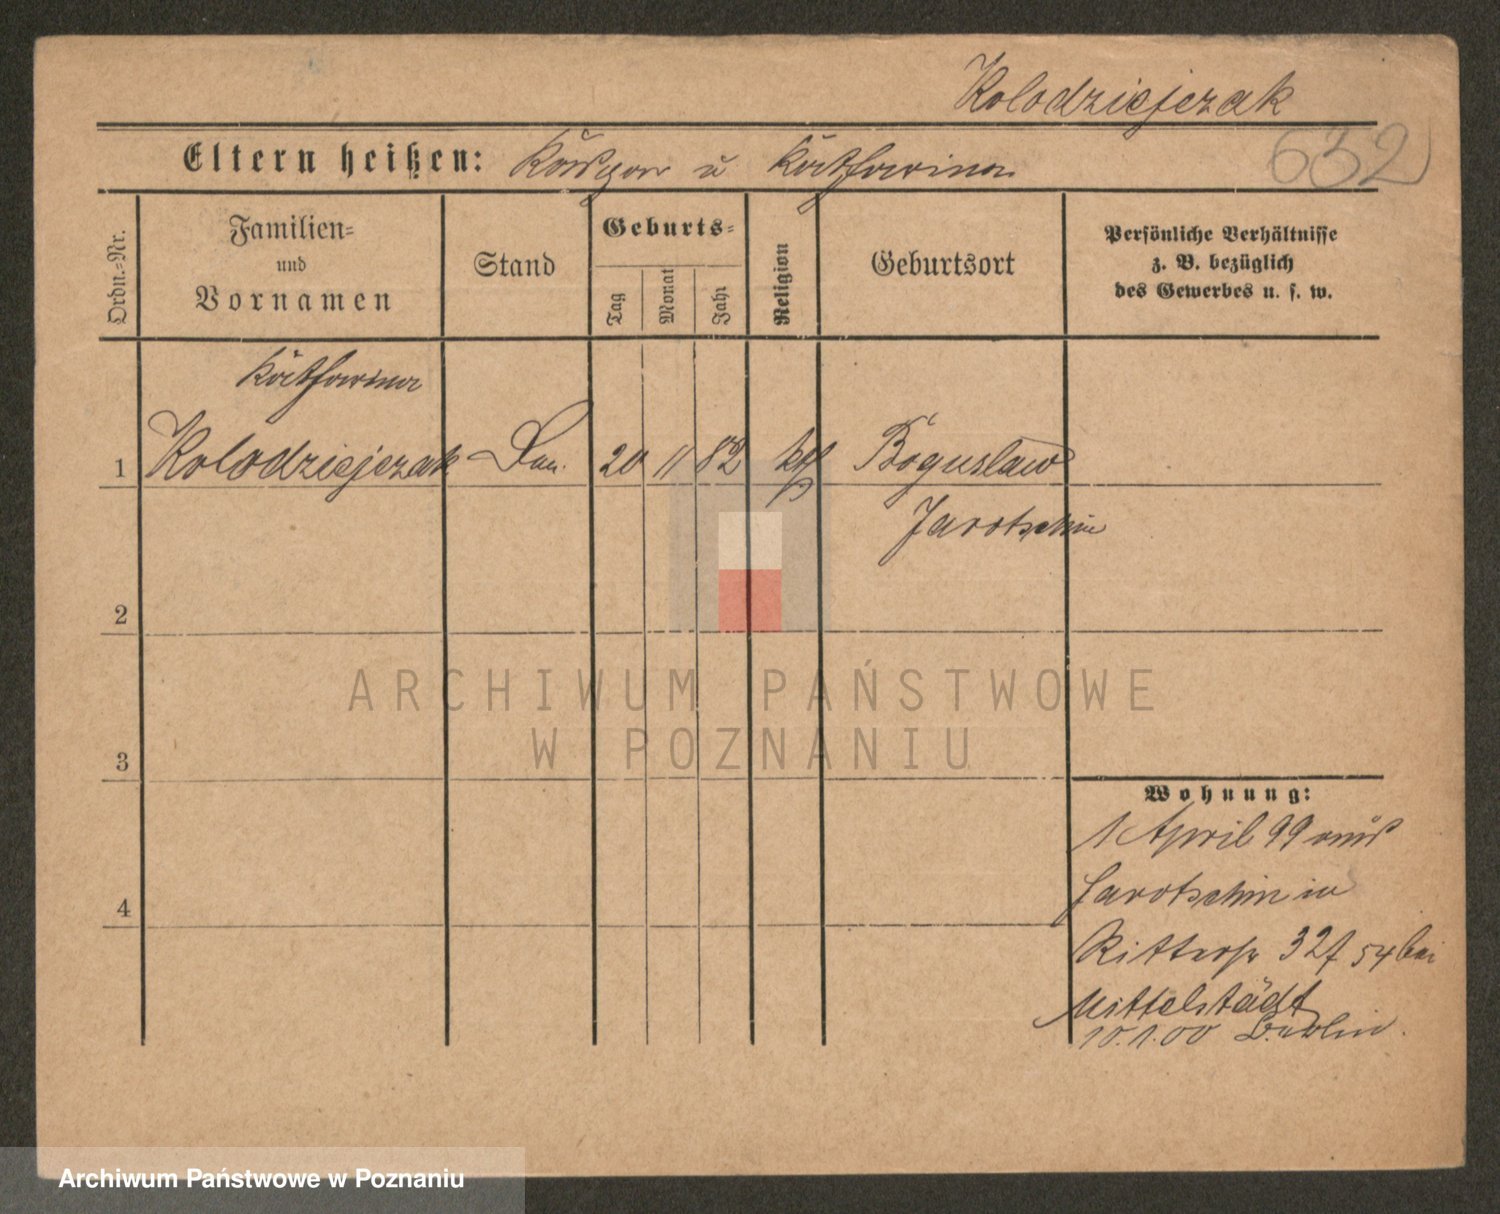 Kolodziejczak
Eltern heißen: Kaspar u Katharina
632
Ordn.-Nr.
Familien-
und
Vornamen
Stand
Geburts-
Tag
Monat
Jahr
Religion
Geburtsort
Persönliche Verhältnisse
z. B. bezüglich
des Gewerbes u. s. w.
Katharina
1 Kolodziejczak 20 11 82 kth Boguslaw
Jarotschin
2
3
4
Wohnung:
1 April 99 aus
Jarotschin in
Ritterstr 32 54 bei
Mittelstädt
10.1.00 Berlin.
ARCHIWUM PAŃSTWOWE
W POZNANIU
Archiwum Państwowe w Poznaniu